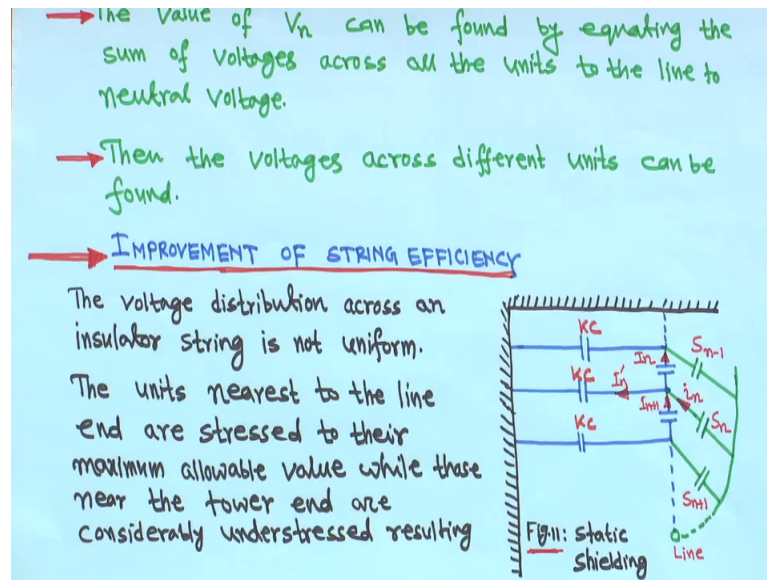 The value of Vn can be found by equating the
sum of voltages across all the units to the line to
neutral voltage.
Then the voltages across different units can be
found.
IMPROVEMENT OF STRING EFFICIENCY
The voltage distribution across an
insulator string is not uniform.
The units nearest to the line
end are stressed to their
maximum allowable value while those
near the tower end are
considerably understressed resulting
KC
Sn-1
In
KC
I'n
in
In+1
Sn
KC
Sn+1
Fig.11: Static
Shielding
Line